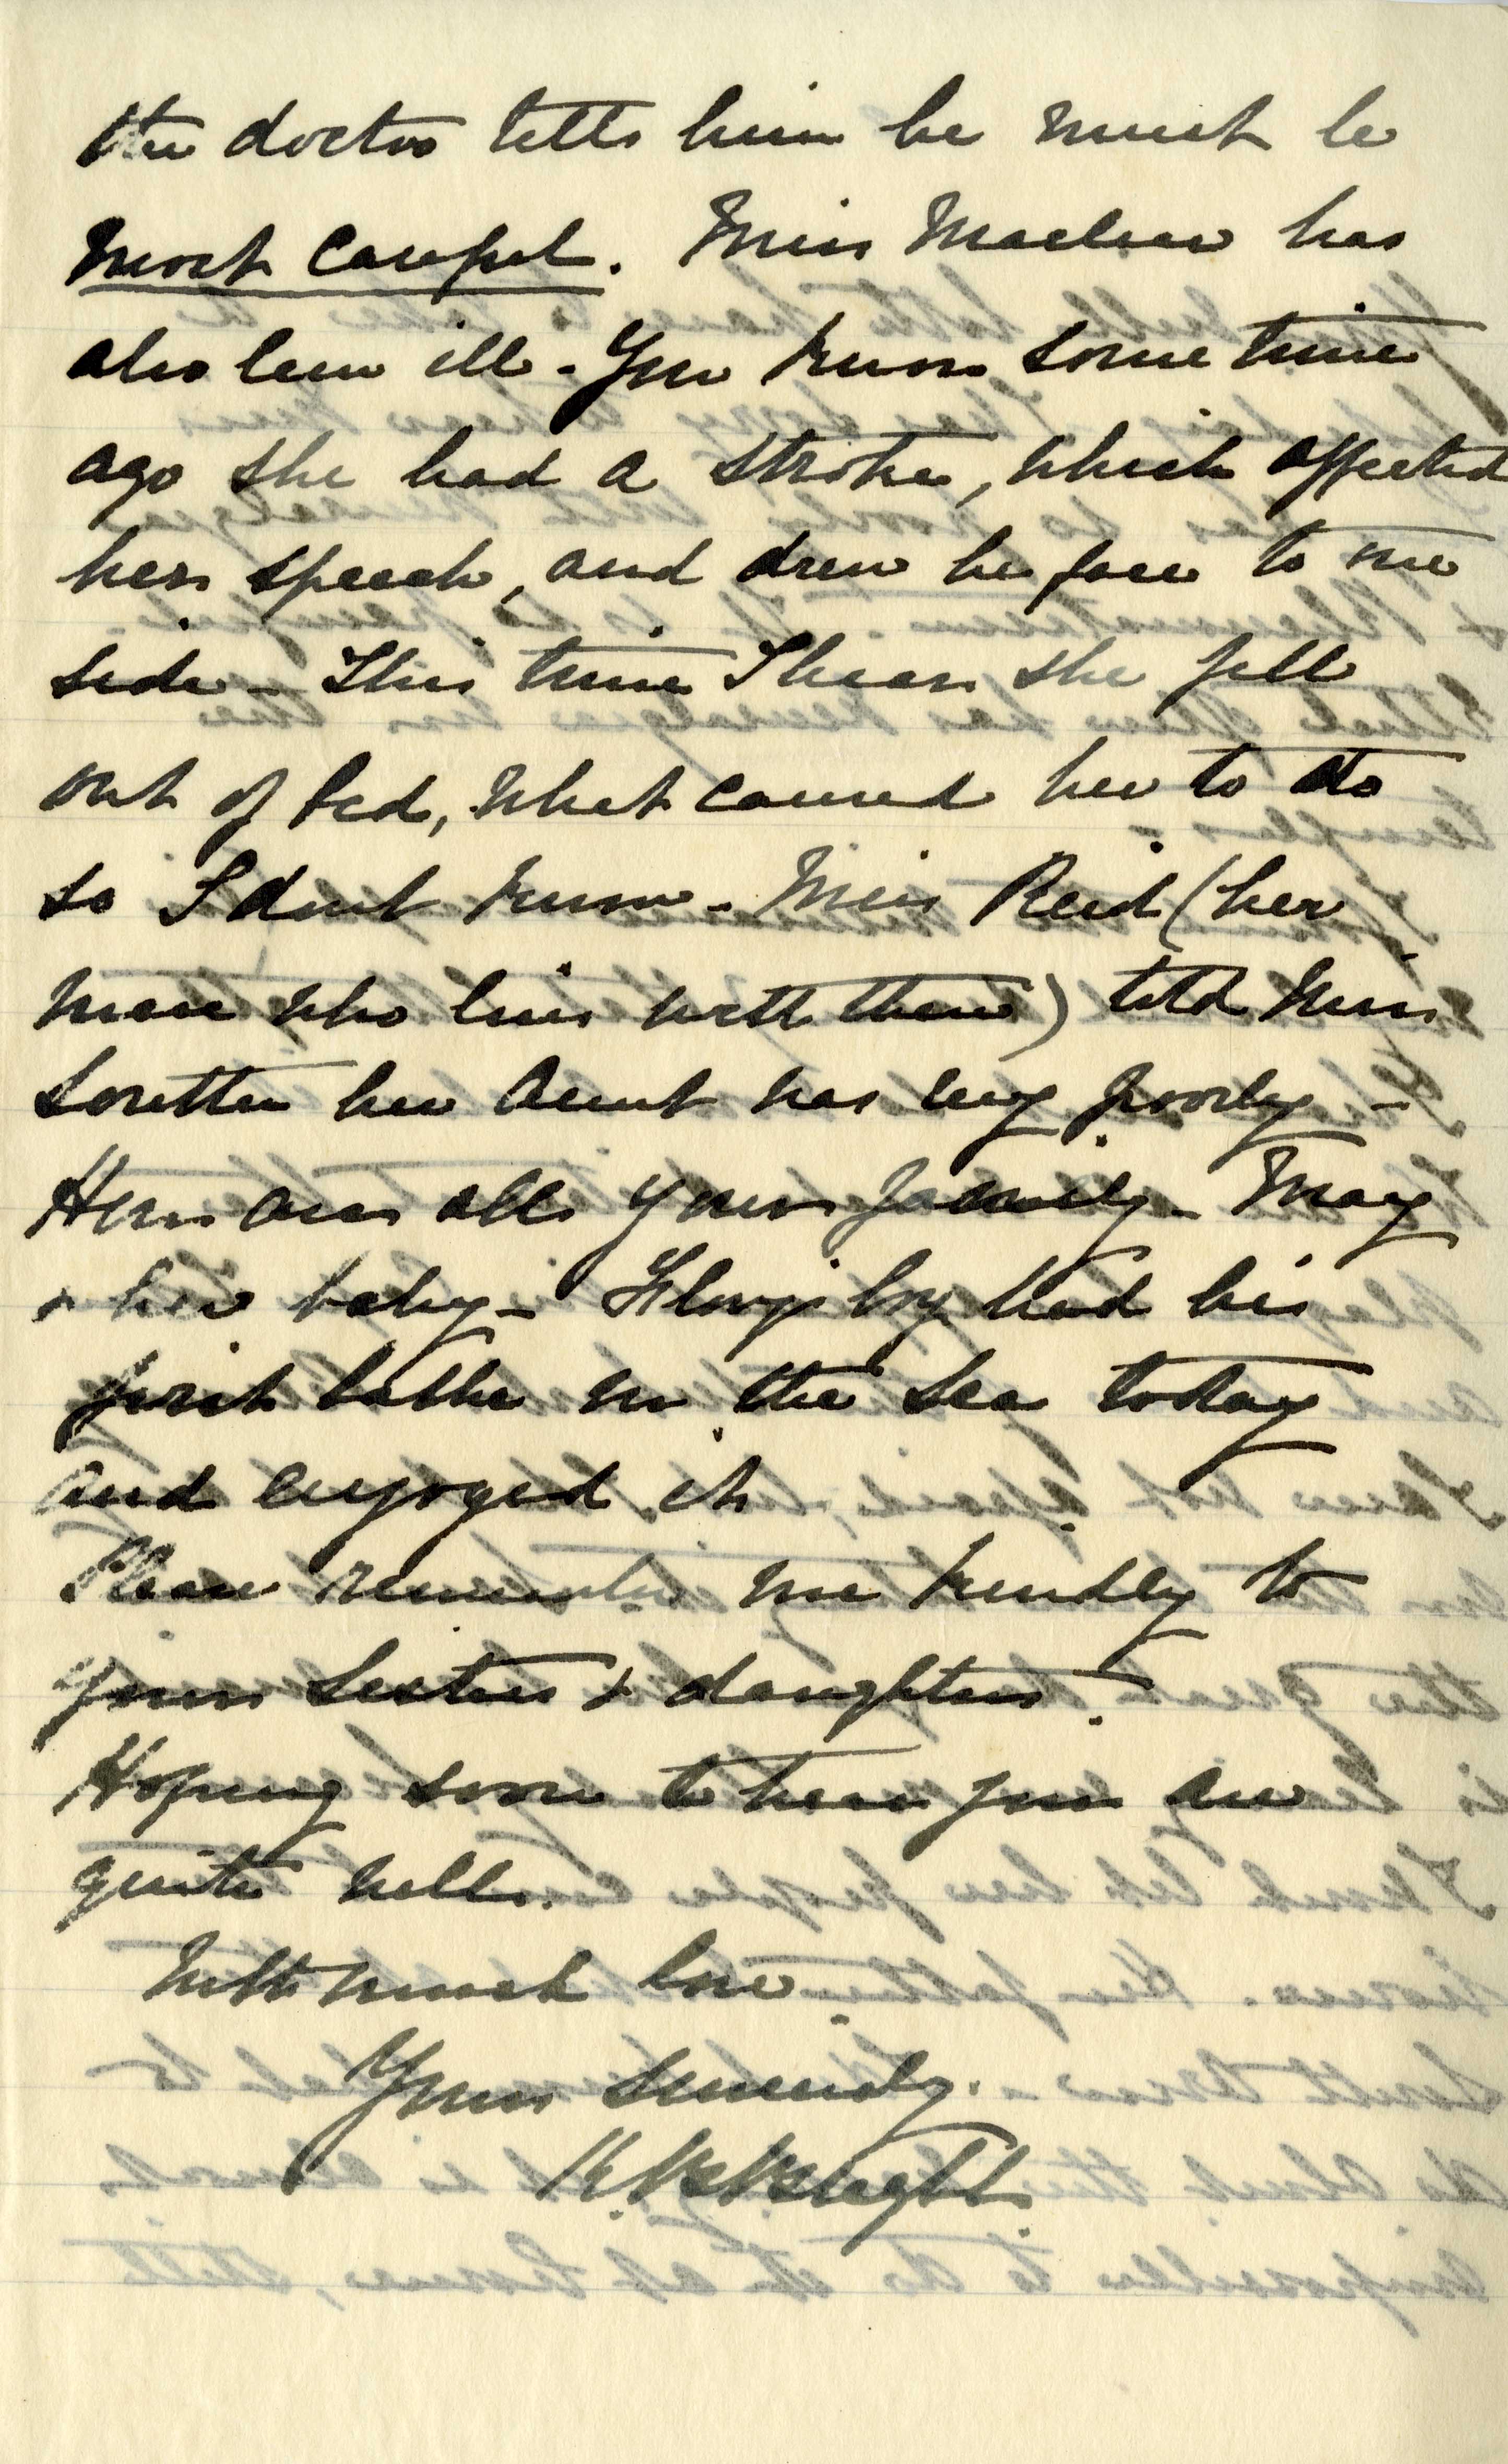 the doctor tells him he must be
most careful. Miss Maclean has
also been ill - You know some time
ago she had a stroke, which affected
her speech, and drew her face to one
side - This time I hear she fell
out of bed, what caused her to do
so I dont know - Miss Reid (her
niece who lives with them) told Miss
her Aunt was very poorly -
How are all your family - May
& her baby - boy had his
first bathe in the sea today
and enjoyed it
Please remember me kindly to
your Sisters & daughters.
Hoping soon to hear you are
quite well.
With much love
Yours sincerely.